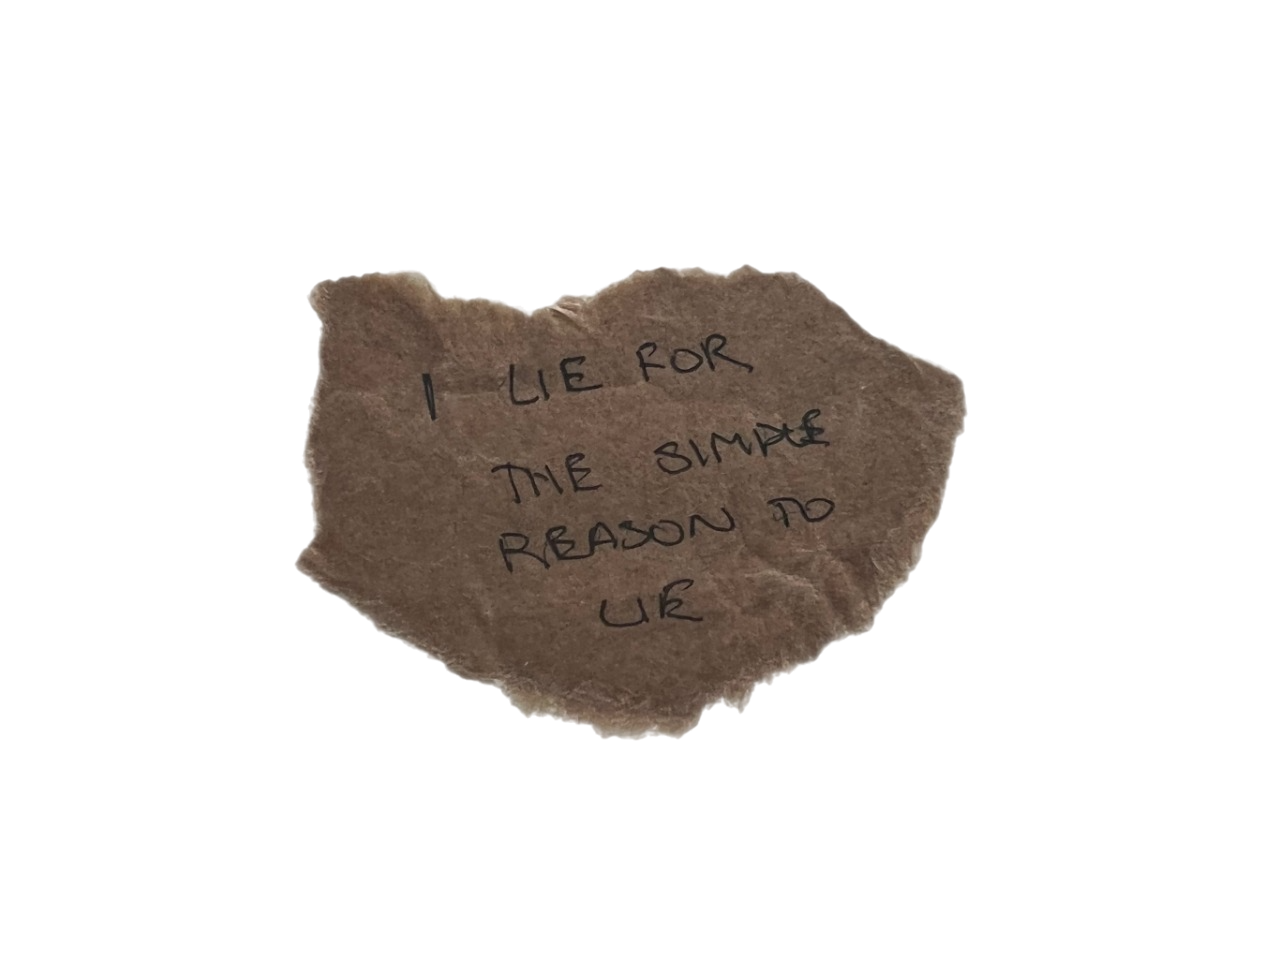 I LIE FOR
THE SIMPLE
REASON TO
LIE